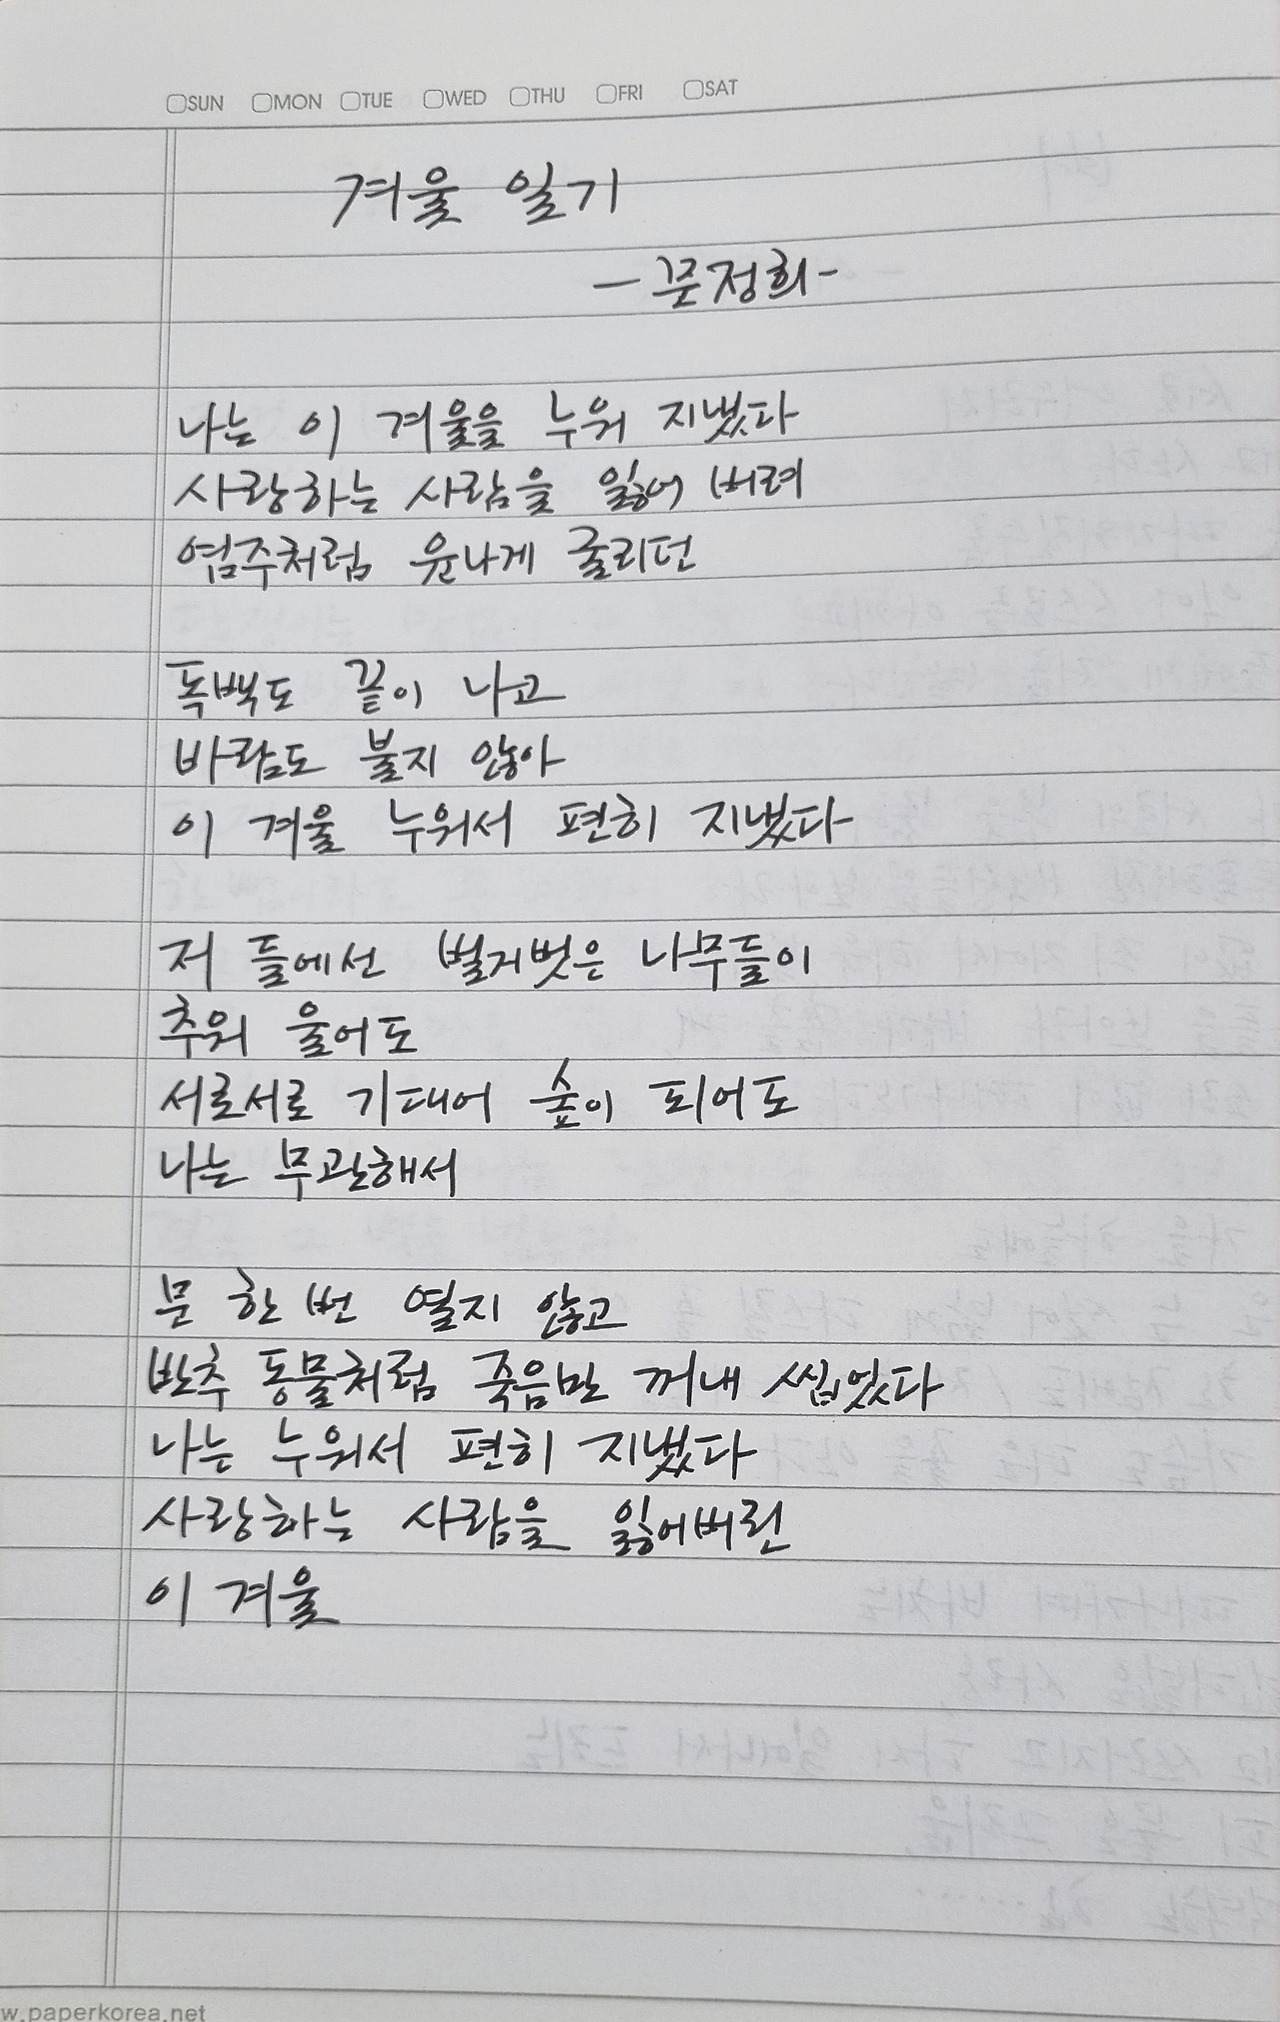 SUN MON TUE WED THU FRI SAT
겨울 일기
-문정희-
나는 이 겨울을 누워 지냈다
사랑하는 사람을 잃어 버려
염주처럼 윤나게 굴리던
독백도 끝이 나고
바람도 불지 않아
이 겨울 누워서 편히 지냈다
저 들에선 벌거벗은 나무들이
추워 울어도
서로서로 기대어 숲이 되어도
나는 무관해서
문 한 번 열지 않고
반추 동물처럼 죽음만 꺼내 씹었다
나는 누워서 편히 지냈다
사랑하는 사람을 잃어버린
이 겨울
w.paperkorea.net